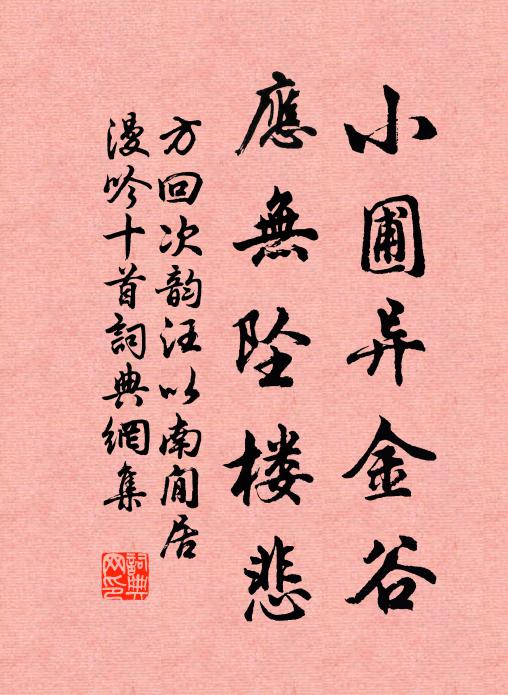 小圃异金谷
應無坠楼悲
方回次韵汪以南闲居
漫吟十首詞典網集
詞典网印